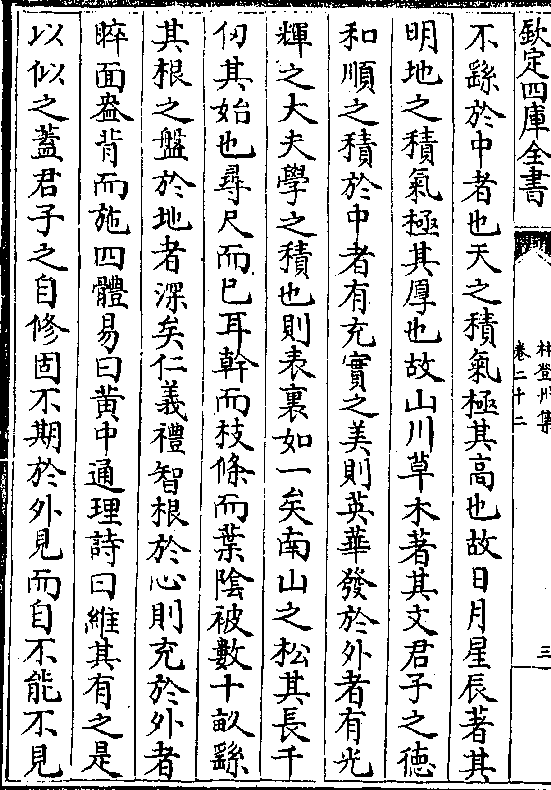 欽定四庫全書
林登州集
卷二十二
三
不繇於中者也天之積氣極其高也故日月星辰著其
明地之積氣極其厚也故山川草木著其文君子之徳
和順之積於中者有充實之美則英華發於外者有光
輝之大夫學之積也則表裏如一矣南山之松其長千
仞其始也尋尺而已耳幹而枝條而葉隂被數十畝繇
其根之盤於地者深矣仁義禮智根於心則充於外者
睟面盎背而施四體易曰黄中通理詩曰維其有之是
以似之蓋君子之自修固不期於外見而自不能不見